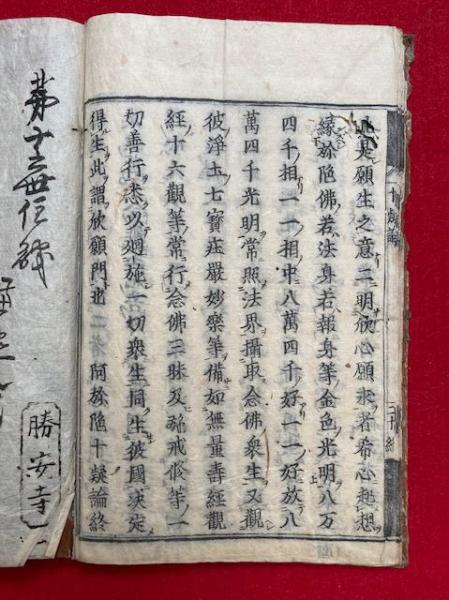 是願生之意二明欣心願求者希心起想
緣旀陁佛若法身若報身等金色光明八万
四千相一一相中八萬四千好一一好放八
萬四千光明常照法界攝取念佛衆生又觀
彼淨土七寶莊嚴妙樂等備如無量壽經觀
經十六觀等常行念佛三昧及施戒修等一
切善行悉以廻施一切衆生同生彼國决定
得生此謂欣願門也 阿旀陁十疑論終
十疑論
第十
勝安寺